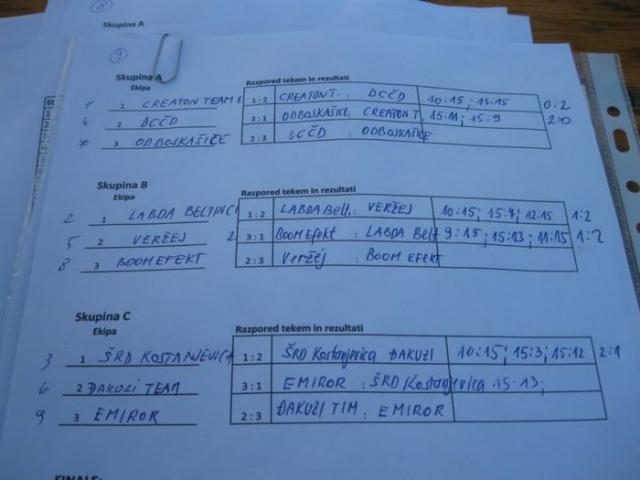 8
Skupina A
9
Skupina A
Ekipa
Razpored tekem in rezultati
1 1 CREATON TEAM 1
1:2 CREATON T. : DCČD 10:15; 13:15 0:2
4 2 DCČD
3:1 ODBOJKAŠICE CREATON T 15:11; 15:9 2:0
7 3 ODBOJKAŠICE
2:3 DCČD : ODBOJKAŠICE
Skupina B
Ekipa
Razpored tekem in rezultati
2 1 LABDA BELTINCI
1:2 LABDA Belt. : VERŽEJ 10:15; 15:7; 12:15 1:2
5 2 VERŽEJ 2
3:1 BOOM Efekt : LABDA Belt 9:15; 15:13; 11:15 1:2
8 3 BOOM EFEKT
2:3 Veržej : BOOM EFEKT
Skupina C
Ekipa
Razpored tekem in rezultati
3 1 ŠRD KOSTANJEVICA
1:2 ŠRD Kostanjevica ĐAKUZI 10:15; 15:3; 15:12 2:1
6 2 ĐAKUZI TEAM
3:1 EMIROR : ŠRD Kostanjevica 15:13;
9 3 EMIROR
2:3 ĐAKUZI TIM : EMIROR
FINALE: